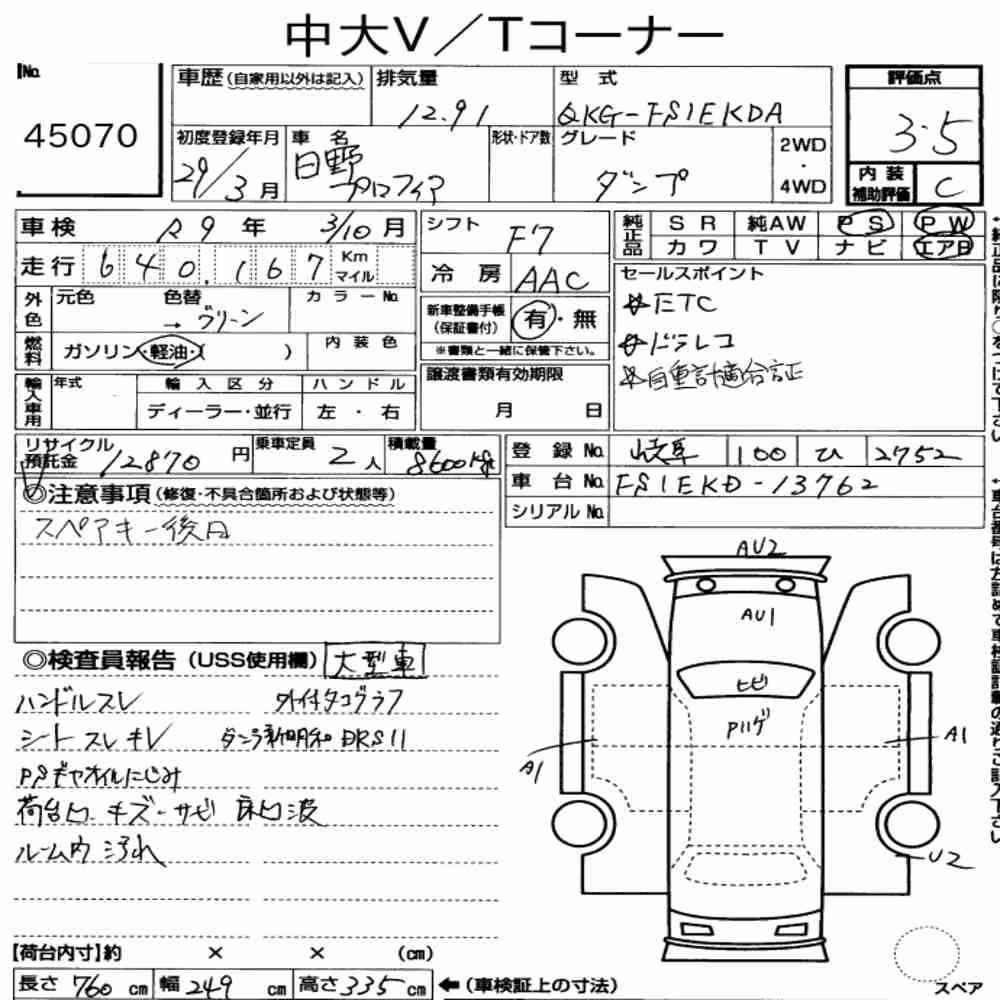 中大V／Tコーナー
No. 45070
車歴（自家用以外は記入） 排気量 12.91 型式 QKG-FS1EKDA
評価点 3.5
初度登録年月 29/3月 車名 日野 プロフィア 形状・ドア数 グレード ダンプ 2WD・4WD
内装補助評価 C
車検 R9年 3/10月 シフト F7
走行 640,167 Km マイル 冷房 AAC
純正品 SR 純AW PS PW
カワ TV ナビ エアB
外色 元色 色替 → グリーン カラーNo.
新車整備手帳（保証書付） 有・無
※書類と一緒に保管下さい。
燃料 ガソリン・軽油・（ ） 内装色
セールスポイント
※ETC
※ドラレコ
※自重計適合証
輸入車用 年式 輸入区分 ハンドル
ディーラー・並行 左・右
譲渡書類有効期限
月 日
リサイクル預託金 12870円 乗車定員 2人 積載量 8600kg
登録No. 岐阜 100 ひ 2752
車台No. FS1EKD-13762
シリアルNo.
◎注意事項（修復・不具合箇所および状態等）
スペアキー後日
◎検査員報告（USS使用欄） 大型車
ハンドルスレ 外付タコグラフ
シートスレキレ ダンプ新明和 DRS11
PSギヤオイルにじみ
荷台凹 キズ・サビ 床凹波
ルーム内汚れ
AU2
AU1
ヒビ
Pハゲ
A1
A1
U2
スペア
【荷台内寸】約 × × （cm）
長さ 760 cm 幅 249 cm 高さ 335 cm ←（車検証上の寸法）